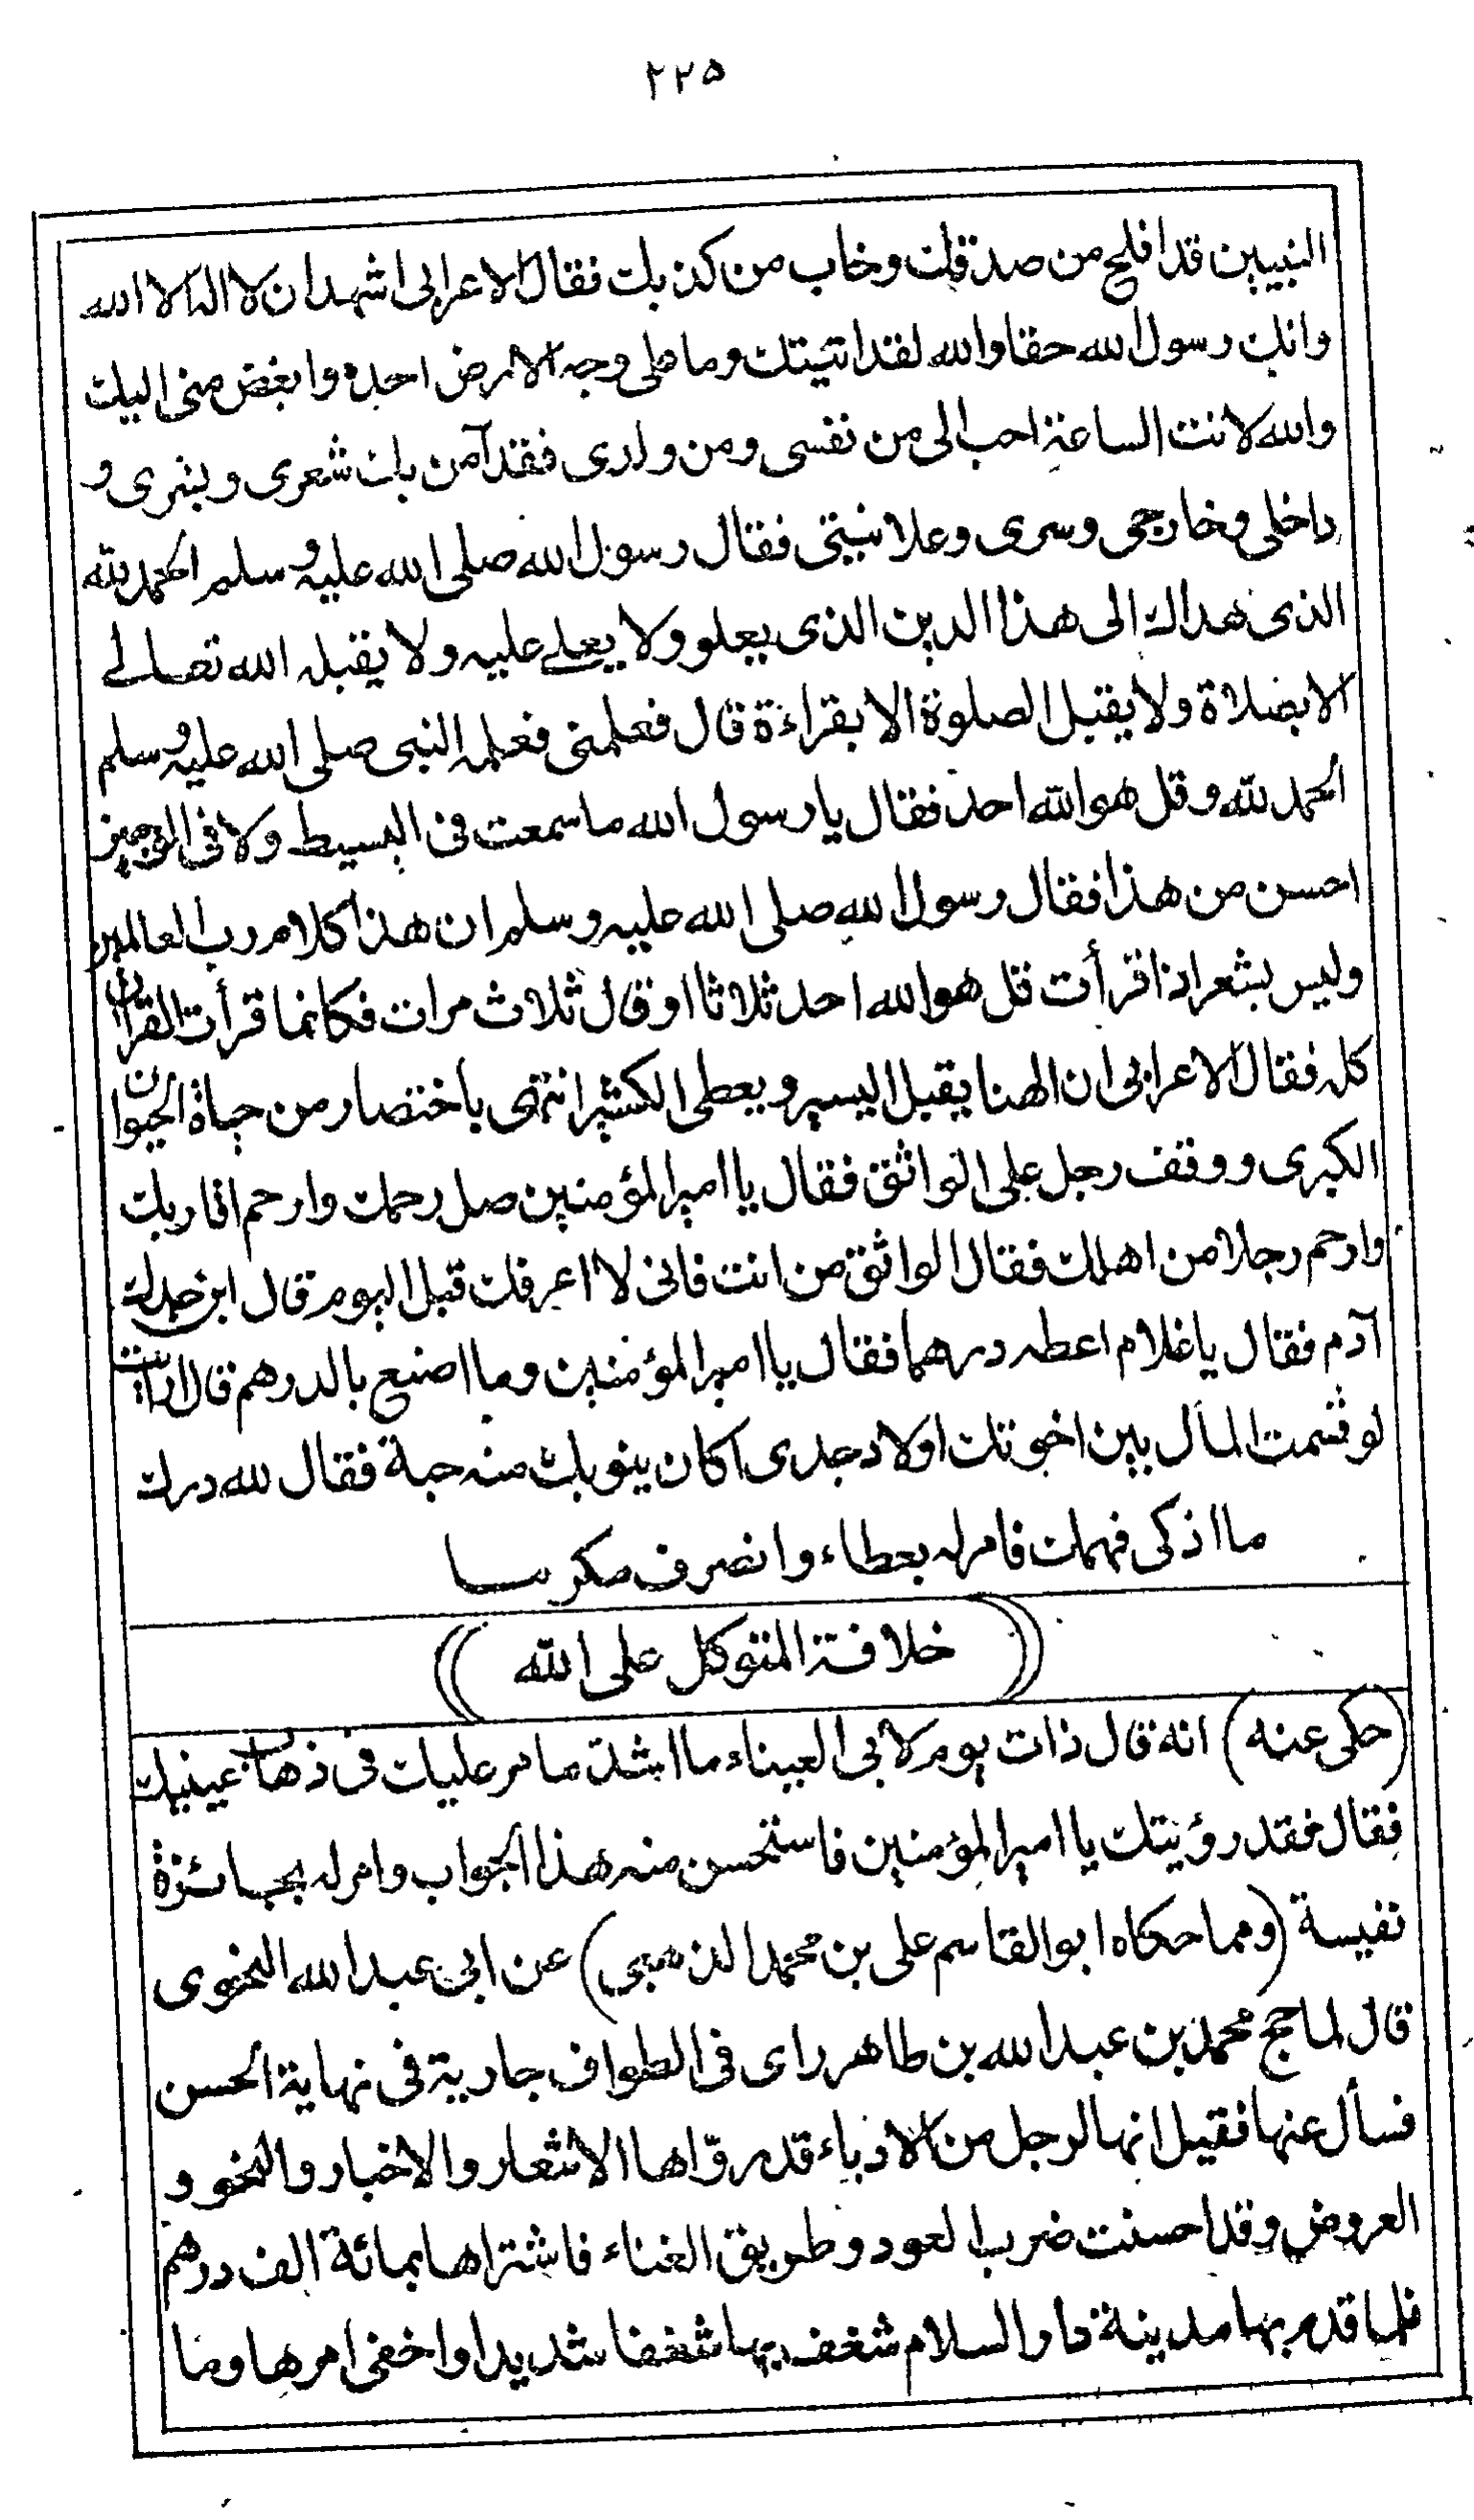 ٢٢٥
النبيين قد افلح من صدقك وخاب من كذبك فقال الاعرابى اشهد ان لا اله الا الله
وانك رسول الله حقا والله لقد اتيتك وما على وجه الارض احد وابغض منى اليك
والله لانت الساعة احب الى من نفسى ومن ولدى فقد آمن بك شعرى وبشرى و
داخلى وخارجى وسرى وعلانيتى فقال رسول الله صلى الله عليه وسلم الحمد لله
الذى هداك الى هذا الدين الذى يعلو ولا يعلے عليه ولا يقبله الله تعالے
الا بصلاة ولا يقبل الصلوة الا بقراءة قال فعلمنى فعلمه النبى صلى الله عليه وسلم
الحمد لله وقل هو الله احد فقال يا رسول الله ما سمعت فى البسيط ولا فى الوجيز
احسن من هذا فقال رسول الله صلى الله عليه وسلم ان هذا كلام رب العالمين
وليس بشعر اذا قرأت قل هو الله احد ثلاثا او قال ثلاث مرات فكانما قرأت القران
كله فقال الاعرابى ان الهنا يقبل اليسير ويعطى الكثير انتهى باختصار من حياة الحيوان
الكبرى ووقف رجل على الواثق فقال يا امير المؤمنين صل رحمك وارحم اقاربك
وارحم رجلا من اهلك فقال الواثق من انت فانى لا اعرفك قبل اليوم قال ابن جدك
آدم فقال يا غلام اعطه درهما فقال يا امير المؤمنين وما اصنع بالدرهم قال ارايت
لو قسمت المال بين اخوتك اولاد جدى اكان ينوبك منه حبة فقال لله درك
ما اذكى فهمك فامر له بعطاء وانصرف مكرما
((خلافة المتوكل على الله))
(حكى عنه) انه قال ذات يوم لابى العيناء ما اشد ما مر عليك فى ذهاب عينيك
فقال فقد رؤيتك يا امير المؤمنين فاستحسن منه هذا الجواب وامر له بجائزة
نفيسة (ومما حكاه ابو القاسم على بن محمد الذهبى) عن ابى عبد الله النحوى
قال لما حج محمد بن عبد الله بن طاهر راى فى الطواف جارية فى نهاية الحسن
فسأل عنها فقيل انها لرجل من الادباء قد روّاها الاشعار والاخبار والنحو و
العروض وقد احسنت ضرب العود وطريق الغناء فاشتراها بمائة الف درهم
فلما قدم بها مدينة دار السلام شغف بها شغفا شديدا واخفى امرها وما